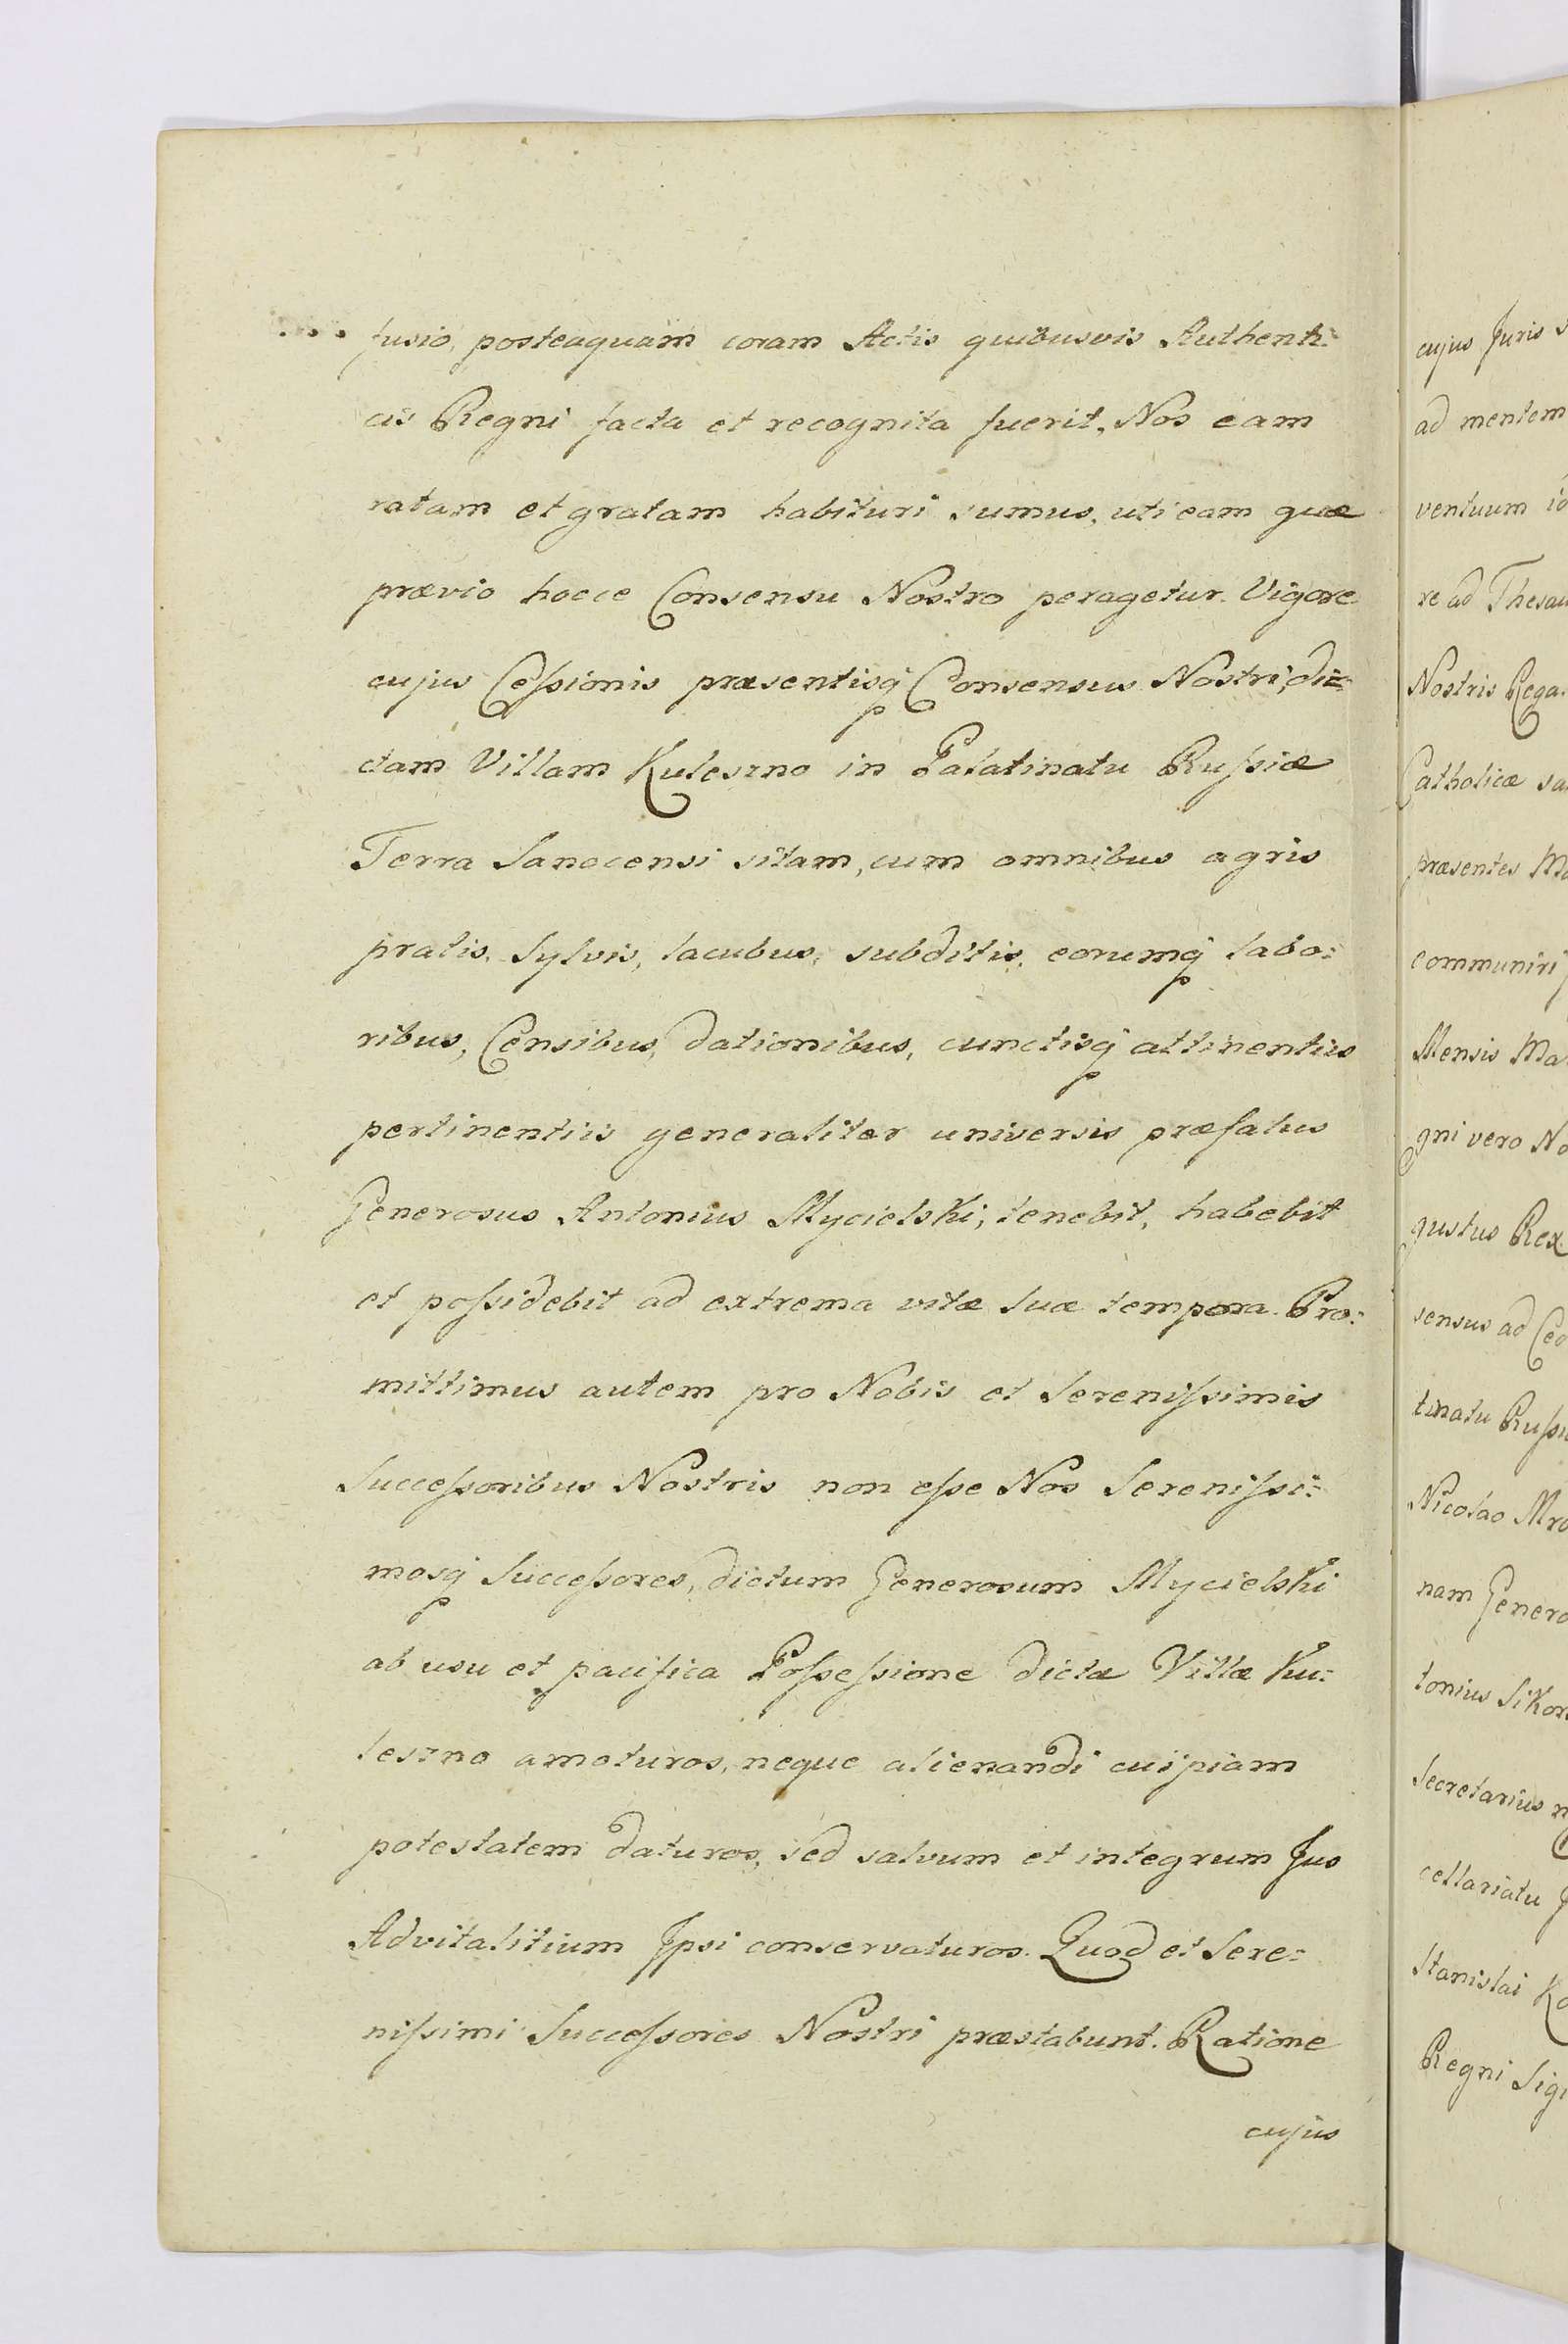 fusio, posteaquam coram Actis quibusvis Authenti=
cis Regni facta et recognita fuerit, Nos eam
ratam et gratam habituri sumus, uti eam quæ
prævio hocce Consensu Nostro peragetur. Vigore
cujus Cessionis præsentisq Consensus Nostri, dic=
tam Villam Kuleszno in Palatinatu Russiæ
Terra Sanocensi sitam, cum omnibus agris
pratis, Sylvis, lacubus, subditis, eorumq labo=
ribus, Censibus, dationibus, cunctisq attinentiis
pertinentiis generaliter universis præfatus
Generosus Antonius Mycielski, tenebit, habebit
et possidebit ad extrema vitæ suæ tempora. Pro=
mittimus autem pro Nobis et Serenissimis
Successoribus Nostris non esse Nos Serenissi=
mosq Successores, dictum Generosum Mycielski
ab usu et pacifica Possessione dictæ Villæ Ku=
leszno amoturos, neque alienandi cuipiam
potestatem daturos, sed salvum et integrum Jus
Advitalitium Ipsi conservaturos. Quod et Sere=
nissimi Successores Nostri præstabunt. Ratione
cujus
cujus Juris
ad mentem
ventuum
re ad
Nostris
Catholicæ
præsentes
communiri
Mensis
gni vero
gustus Rex
sensus ad
tinatu
Nicolao
nam
tonius
Secretarius
cellariatu
Stanislai
Regni